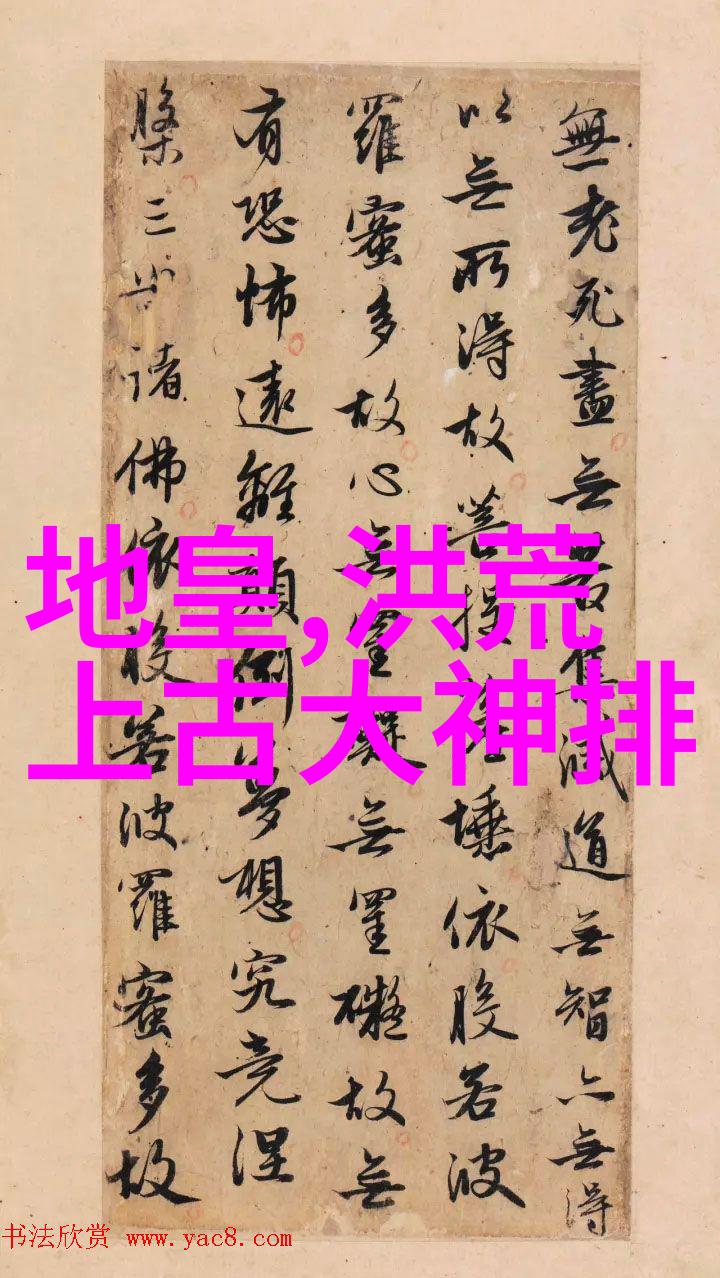 無老死盡无苦集滅道无智亦无得
以无所得故菩提薩埵依般若波
羅蜜多故心无罣礙无罣礙故无
有恐怖遠離顛倒夢想究竟涅
槃三世諸佛依般若波羅蜜多故
地皇,洪荒
上古大神排
书法欣赏 www.yac8.com